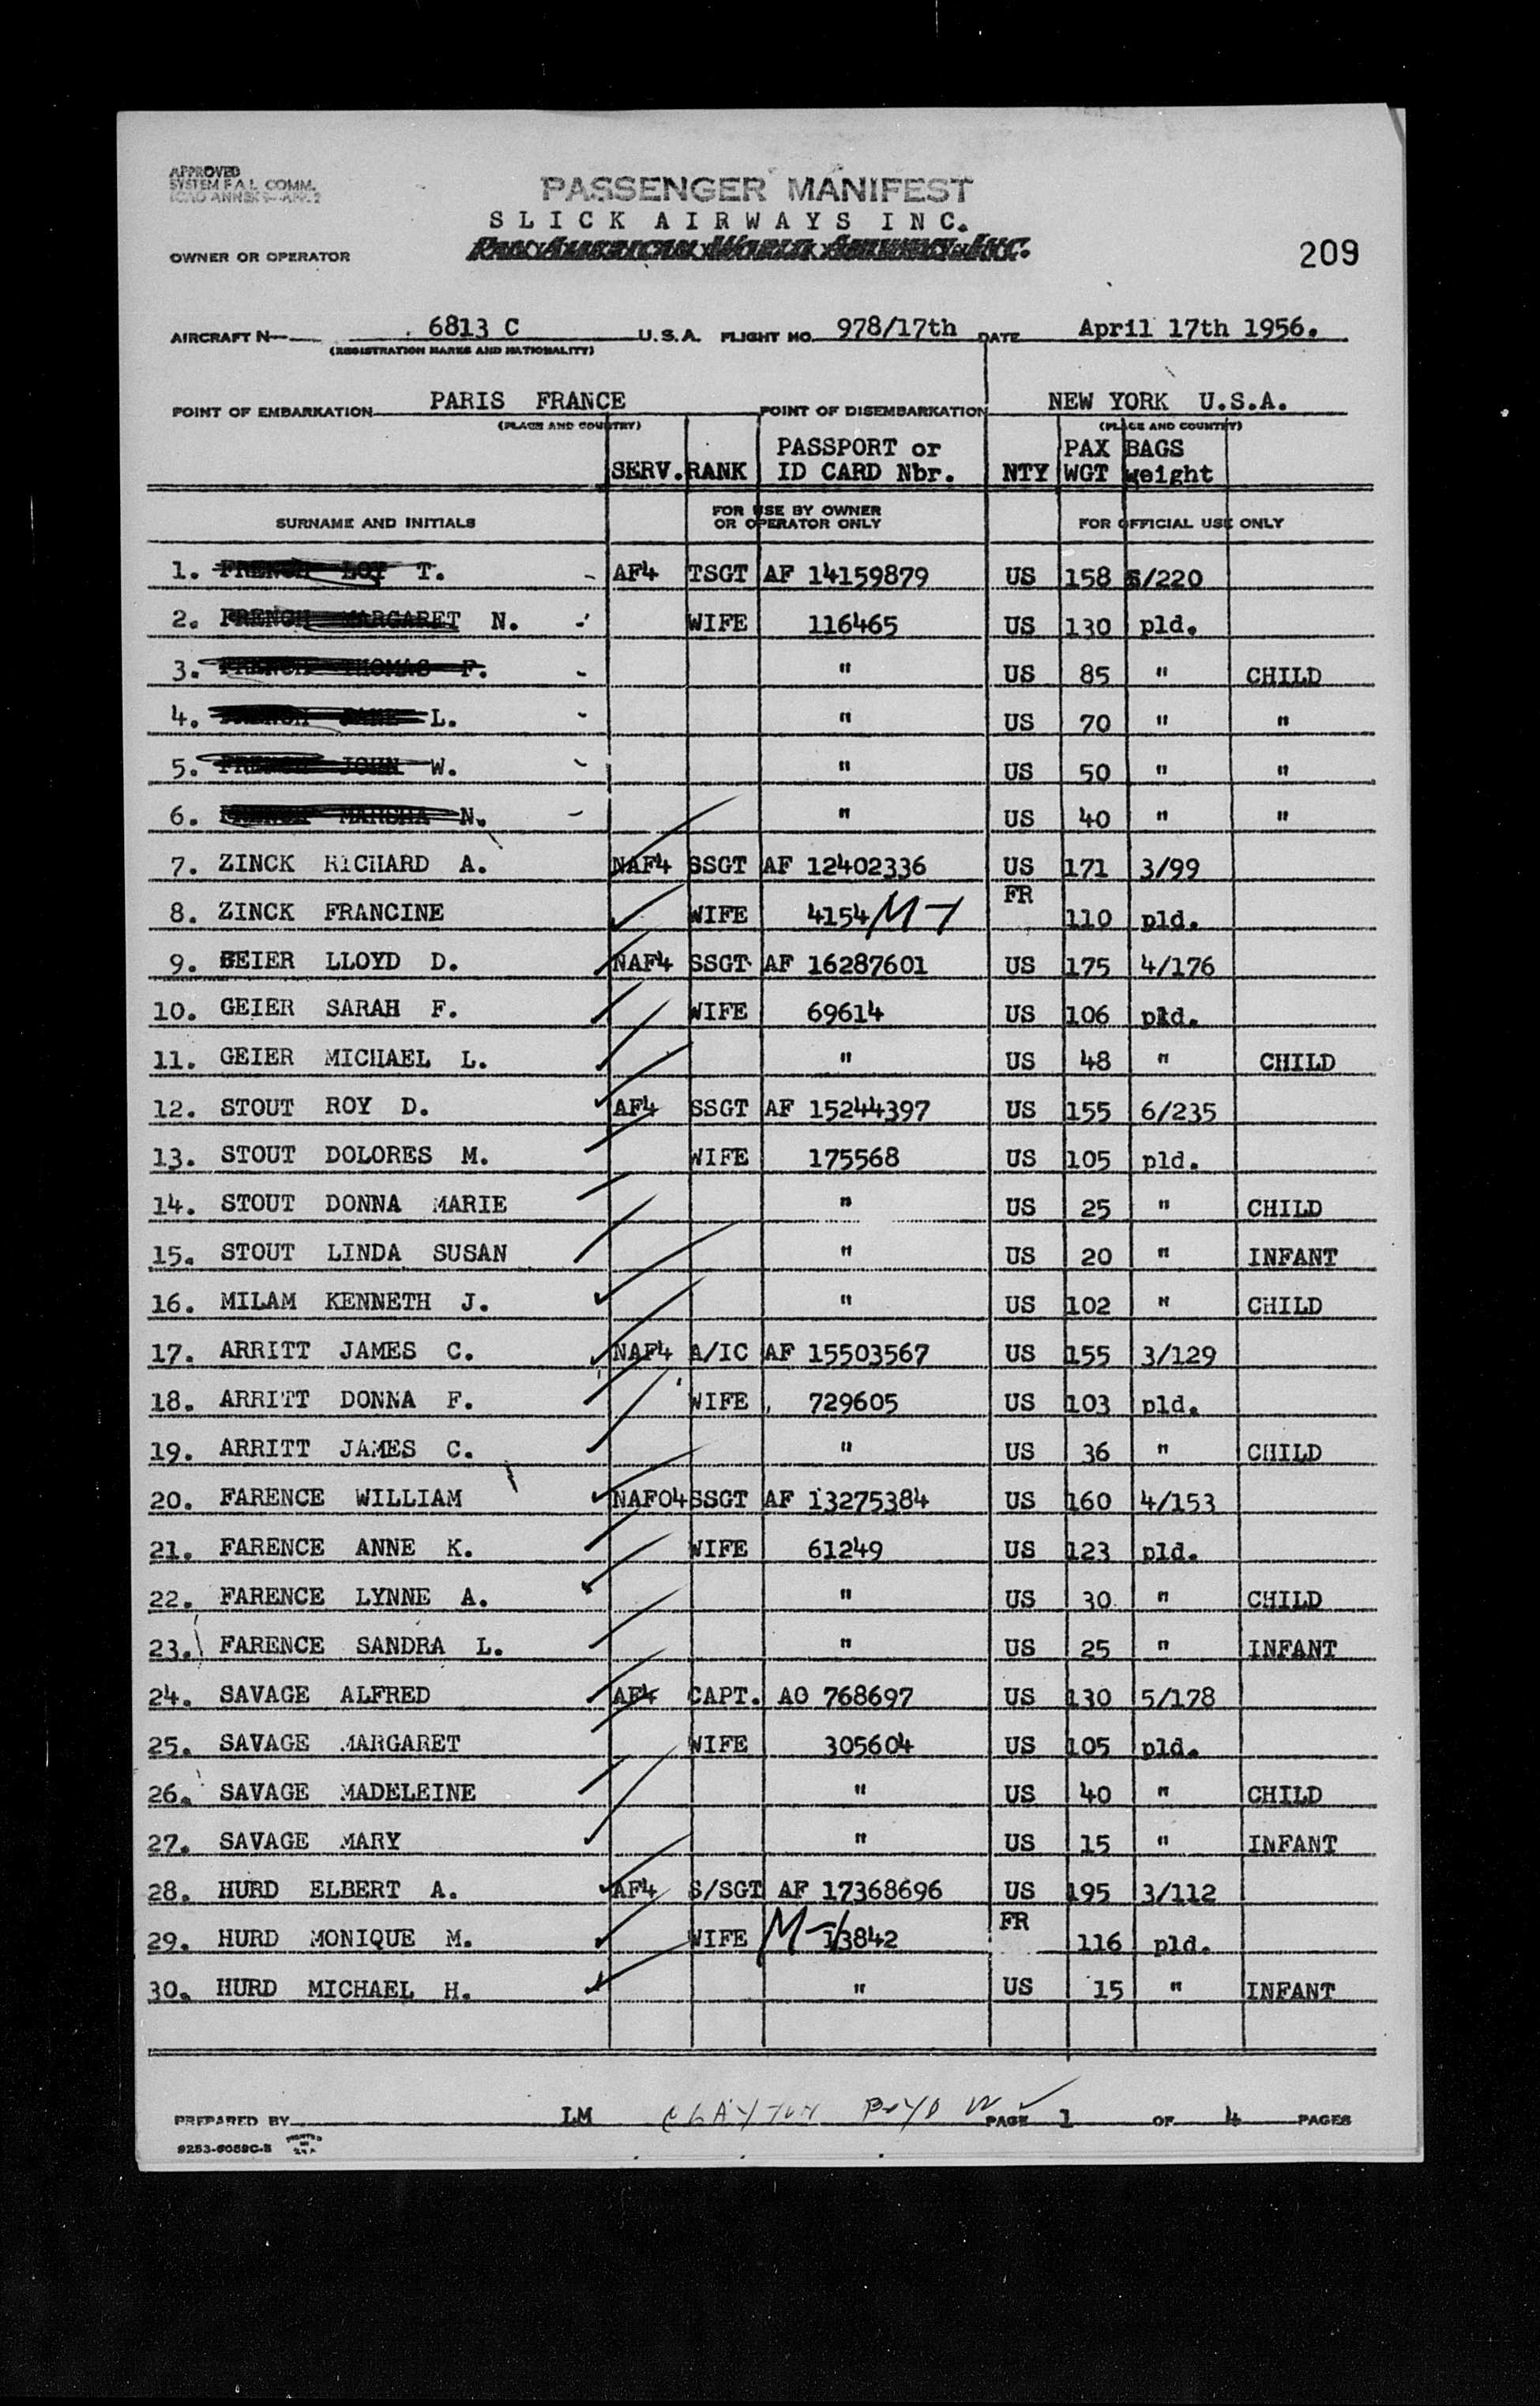 APPROVED
SYSTEM F.A.L. COMM.
PASSENGER MANIFEST
SLICK AIRWAYS INC.
Pan American World Airways Inc.
OWNER OR OPERATOR
209
AIRCRAFT N 6813 C U.S.A. FLIGHT NO. 978/17th DATE April 17th 1956.
(REGISTRATION MARKS AND NATIONALITY)
POINT OF EMBARKATION PARIS FRANCE POINT OF DISEMBARKATION NEW YORK U.S.A.
(PLACE AND COUNTRY) (PLACE AND COUNTRY)
SERV. RANK PASSPORT or ID CARD Nbr. NTY PAX WGT BAGS weight
SURNAME AND INITIALS FOR USE BY OWNER OR OPERATOR ONLY FOR OFFICIAL USE ONLY
1. FRENCH LOY T. AF4 TSGT AF 14159879 US 158 5/220
2. FRENCH MARGARET N. WIFE 116465 US 130 pld.
3. FRENCH THOMAS F. " US 85 " CHILD
4. FRENCH JANE L. " US 70 " "
5. FRENCH JOHN W. " US 50 " "
6. FRENCH MARSHA N. " US 40 " "
7. ZINCK RICHARD A. NAF4 SSGT AF 12402336 US 171 3/99
8. ZINCK FRANCINE WIFE 4154 M-1 FR 110 pld.
9. GEIER LLOYD D. NAF4 SSGT AF 16287601 US 175 4/176
10. GEIER SARAH F. WIFE 69614 US 106 pld.
11. GEIER MICHAEL L. " US 48 " CHILD
12. STOUT ROY D. AF4 SSGT AF 15244397 US 155 6/235
13. STOUT DOLORES M. WIFE 175568 US 105 pld.
14. STOUT DONNA MARIE " US 25 " CHILD
15. STOUT LINDA SUSAN " US 20 " INFANT
16. MILAM KENNETH J. " US 102 " CHILD
17. ARRITT JAMES C. NAF4 A/IC AF 15503567 US 155 3/129
18. ARRITT DONNA F. WIFE 729605 US 103 pld.
19. ARRITT JAMES C. " US 36 " CHILD
20. FARENCE WILLIAM NAFO4 SSGT AF 13275384 US 160 4/153
21. FARENCE ANNE K. WIFE 61249 US 123 pld.
22. FARENCE LYNNE A. " US 30 " CHILD
23. FARENCE SANDRA L. " US 25 " INFANT
24. SAVAGE ALFRED AF4 CAPT. AO 768697 US 130 5/178
25. SAVAGE MARGARET WIFE 305604 US 105 pld.
26. SAVAGE MADELEINE " US 40 " CHILD
27. SAVAGE MARY " US 15 " INFANT
28. HURD ELBERT A. AF4 S/SGT AF 17368696 US 195 3/112
29. HURD MONIQUE M. WIFE M-1 13842 FR 116 pld.
30. HURD MICHAEL H. " US 15 " INFANT
PREPARED BY LM CLAYTON BOYD W PAGE 1 OF 4 PAGES